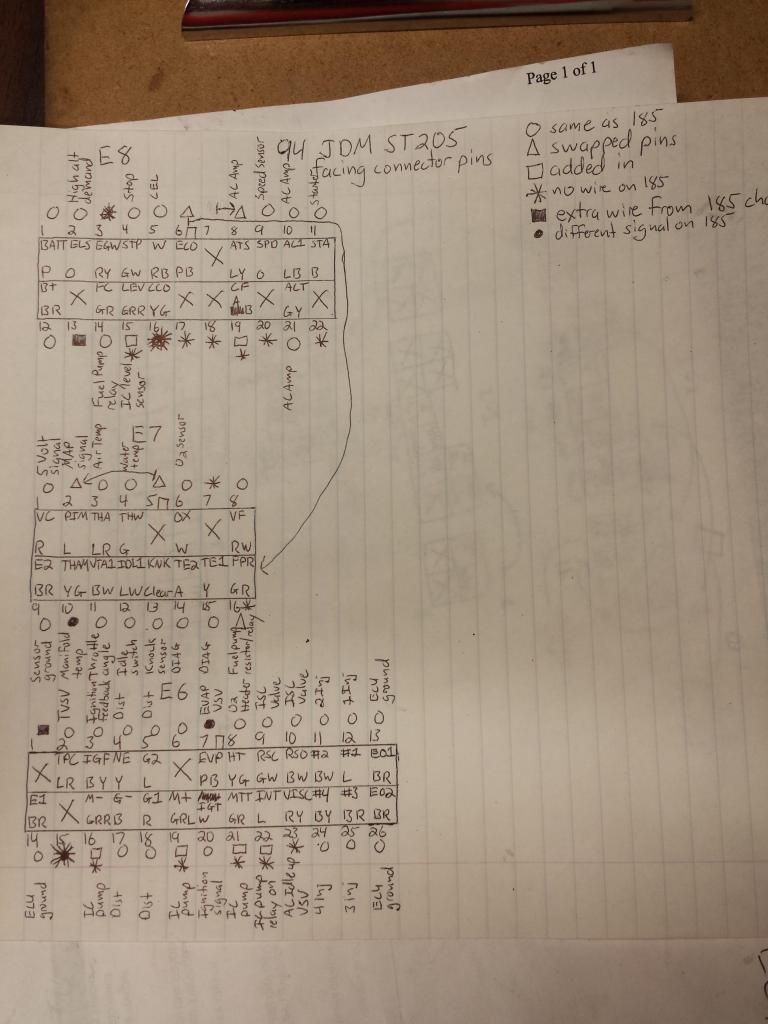 Page 1 of 1
94 JDM ST205
facing connector pins
○ same as 185
△ swapped pins
□ added in
✳ no wire on 185
■ extra wire from 185
● different signal on 185
E8
High alt demand
Stop
CEL
AC Amp
Speed sensor
AC Amp
Starter
1 2 3 4 5 6 7 8 9 10 11
BATT ELS EGW STP W ECO X ATS SPD AC1 STA
P O RY GW RB PB LY O LB B
B+ X FC LEV CCO X X CF X ALT X
BR GR GRR YG A B GY
12 13 14 15 16 17 18 19 20 21 22
Fuel Pump relay
IC level sensor
AC Amp
E7
5 Volt signal
MAP signal
Air Temp
Water temp
O2 Sensor
1 2 3 4 5 6 7 8
VC PIM THA THW X OX X VF
R L LR G W RW
E2 THAM VTA1 IDL1 KNK TE2 TE1 FPR
BR YG BW LW Clear A Y GR
9 10 11 12 13 14 15 16
Sensor ground
Manifold temp
Throttle angle
Idle switch
Knock sensor
DIAG
DIAG
Fuel pump resistor/relay
E6
TVSV
Ignition feedback
Dist
Dist
EVAP VSV
O2 Heater
ISC Valve
ISC Valve
2 Inj
1 Inj
ECU ground
1 2 3 4 5 6 7 8 9 10 11 12 13
X TPC IGF NE G2 X EVP HT RSC RSO #2 #1 E01
LR BY Y L PB YG GW BW BW L BR
E1 X M- G- G1 M+ IGT MTT INT VISC #4 #3 E02
BR GRR B R GRL W GR L RY BY BR BR
14 15 16 17 18 19 20 21 22 23 24 25 26
ECU ground
IC pump
Dist
Dist
IC pump
Ignition signal
IC pump
IC pump relay on
AC Idle up VSV
4 inj
3 inj
ECU ground